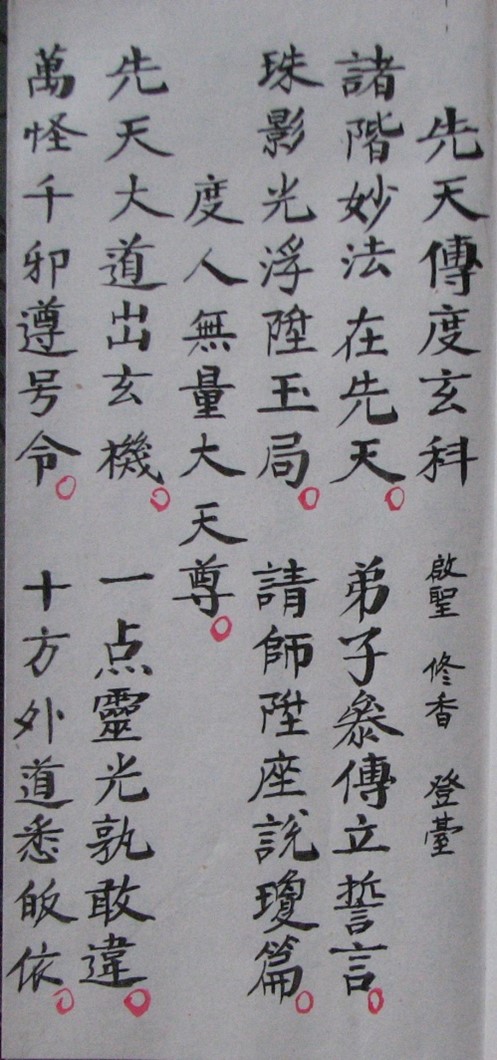 先天傳度玄科　啟聖　修香　登臺
諸階妙法在先天。弟子叅傳立誓言。
珠影光浮陞玉局。請師陞座說瓊篇。
度人無量大天尊。
先天大道出玄機。一点靈光孰敢違。
萬怪千邪遵号令。十方外道悉皈依。